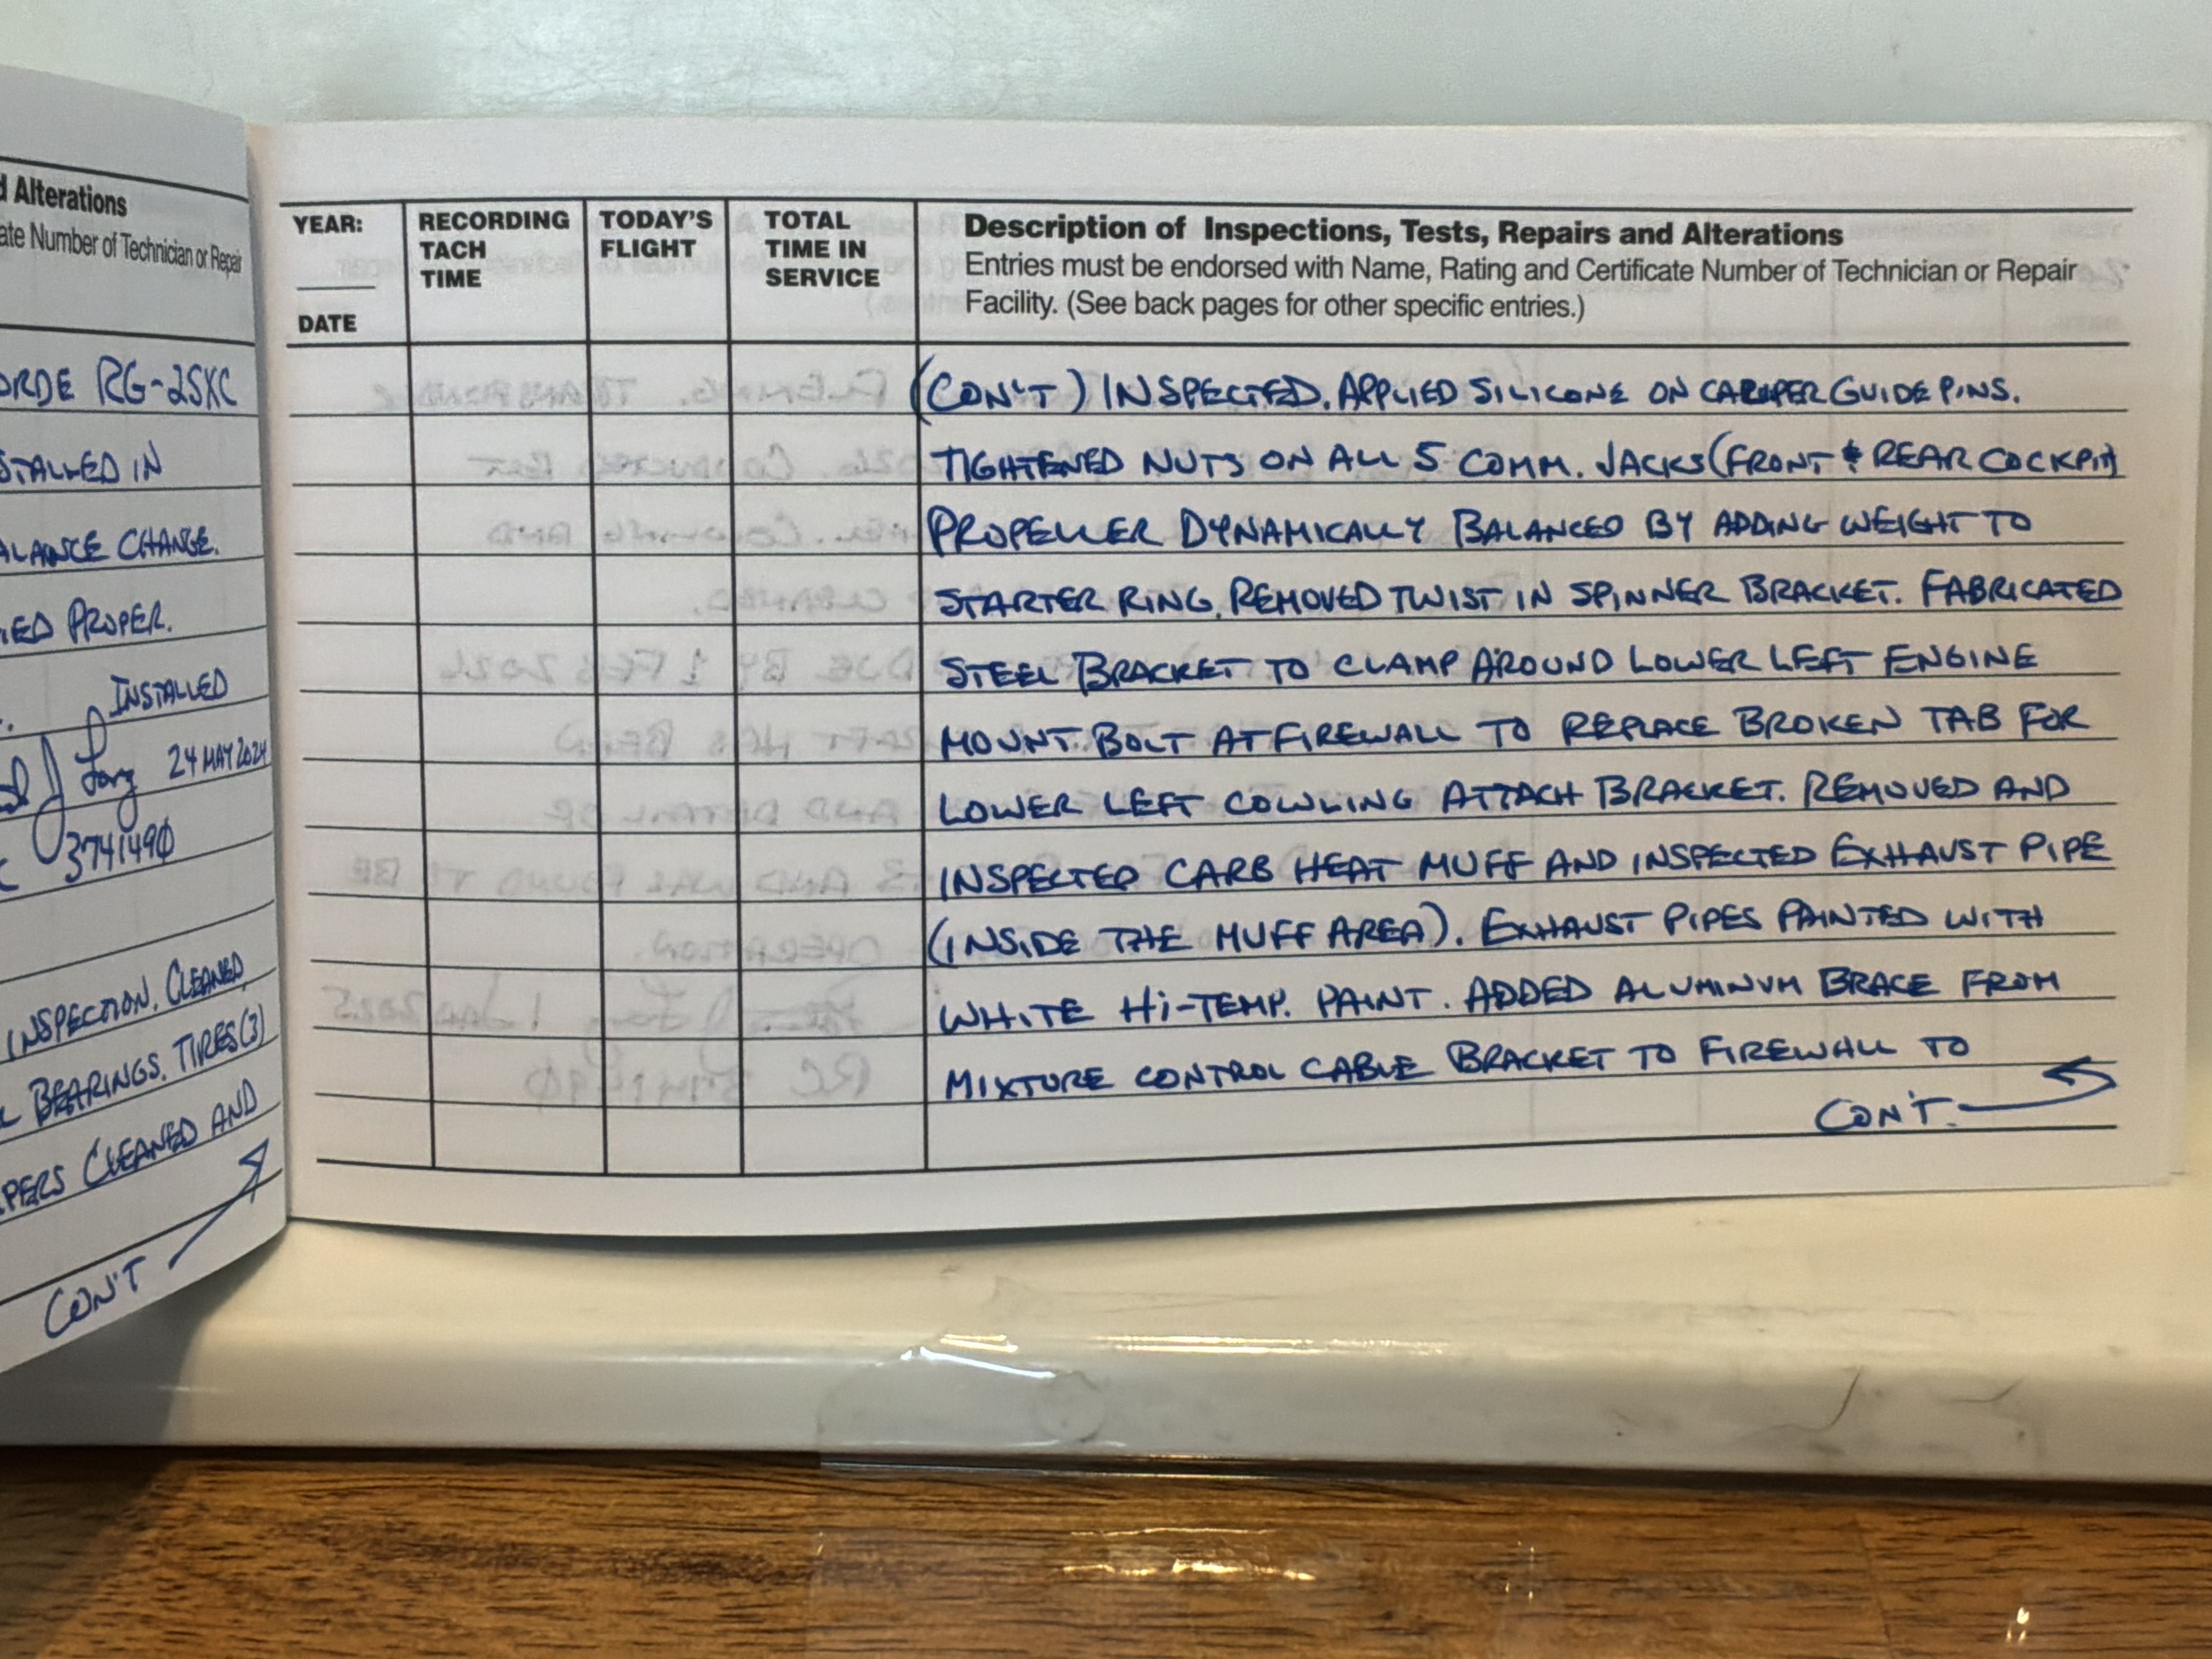 d Alterations
ate Number of Technician or Repair
ORDE RG-25XC
STALLED IN
ALANCE CHANGE.
IED PROPER.
. INSTALLED
24 MAY 2024
3741490
INSPECTION. CLEANED
BEARINGS. TIRES(3)
PERS CLEANED AND
CON'T
YEAR:
DATE
RECORDING
TACH
TIME
TODAY'S
FLIGHT
TOTAL
TIME IN
SERVICE
Description of Inspections, Tests, Repairs and Alterations
Entries must be endorsed with Name, Rating and Certificate Number of Technician or Repair
Facility. (See back pages for other specific entries.)
(CON'T) INSPECTED. APPLIED SILICONE ON CALIPER GUIDE PINS.
TIGHTENED NUTS ON ALL 5 COMM. JACKS (FRONT & REAR COCKPIT)
PROPELLER DYNAMICALLY BALANCED BY ADDING WEIGHT TO
STARTER RING. REMOVED TWIST IN SPINNER BRACKET. FABRICATED
STEEL BRACKET TO CLAMP AROUND LOWER LEFT ENGINE
MOUNT BOLT AT FIREWALL TO REPLACE BROKEN TAB FOR
LOWER LEFT COWLING ATTACH BRACKET. REMOVED AND
INSPECTED CARB HEAT MUFF AND INSPECTED EXHAUST PIPE
(INSIDE THE MUFF AREA). EXHAUST PIPES PAINTED WITH
WHITE HI-TEMP. PAINT. ADDED ALUMINUM BRACE FROM
MIXTURE CONTROL CABLE BRACKET TO FIREWALL TO
CON'T.